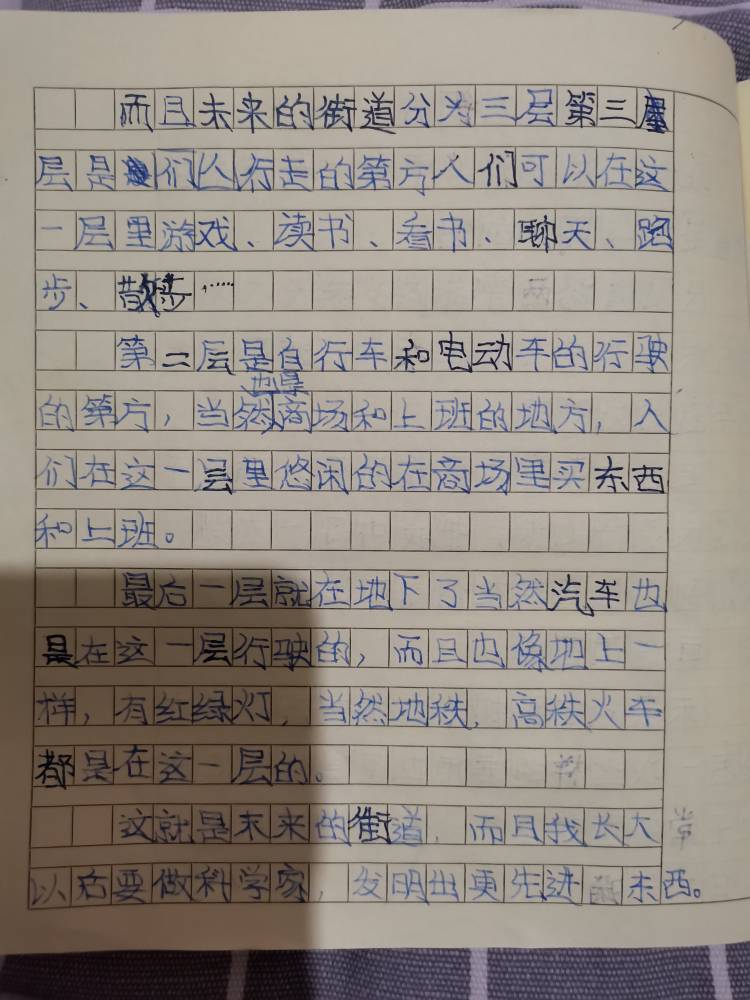 而且未来的街道分为三层第三
层是们人行走的第方人们可以在这
一层里游戏、读书、看书、聊天、跑
步、散步……
第二层是自行车和电动车的行驶
的第方，当然也是商场和上班的地方，人
们在这一层里悠闲的在商场里买东西
和上班。
最后一层就在地下了当然汽车也
是在这一层行驶的，而且也像地上一
样，有红绿灯，当然地秩，高秩火车
都是在这一层的。
这就是未来的街道，而且我长大
以后要做科学家，发明出更先进的东西。